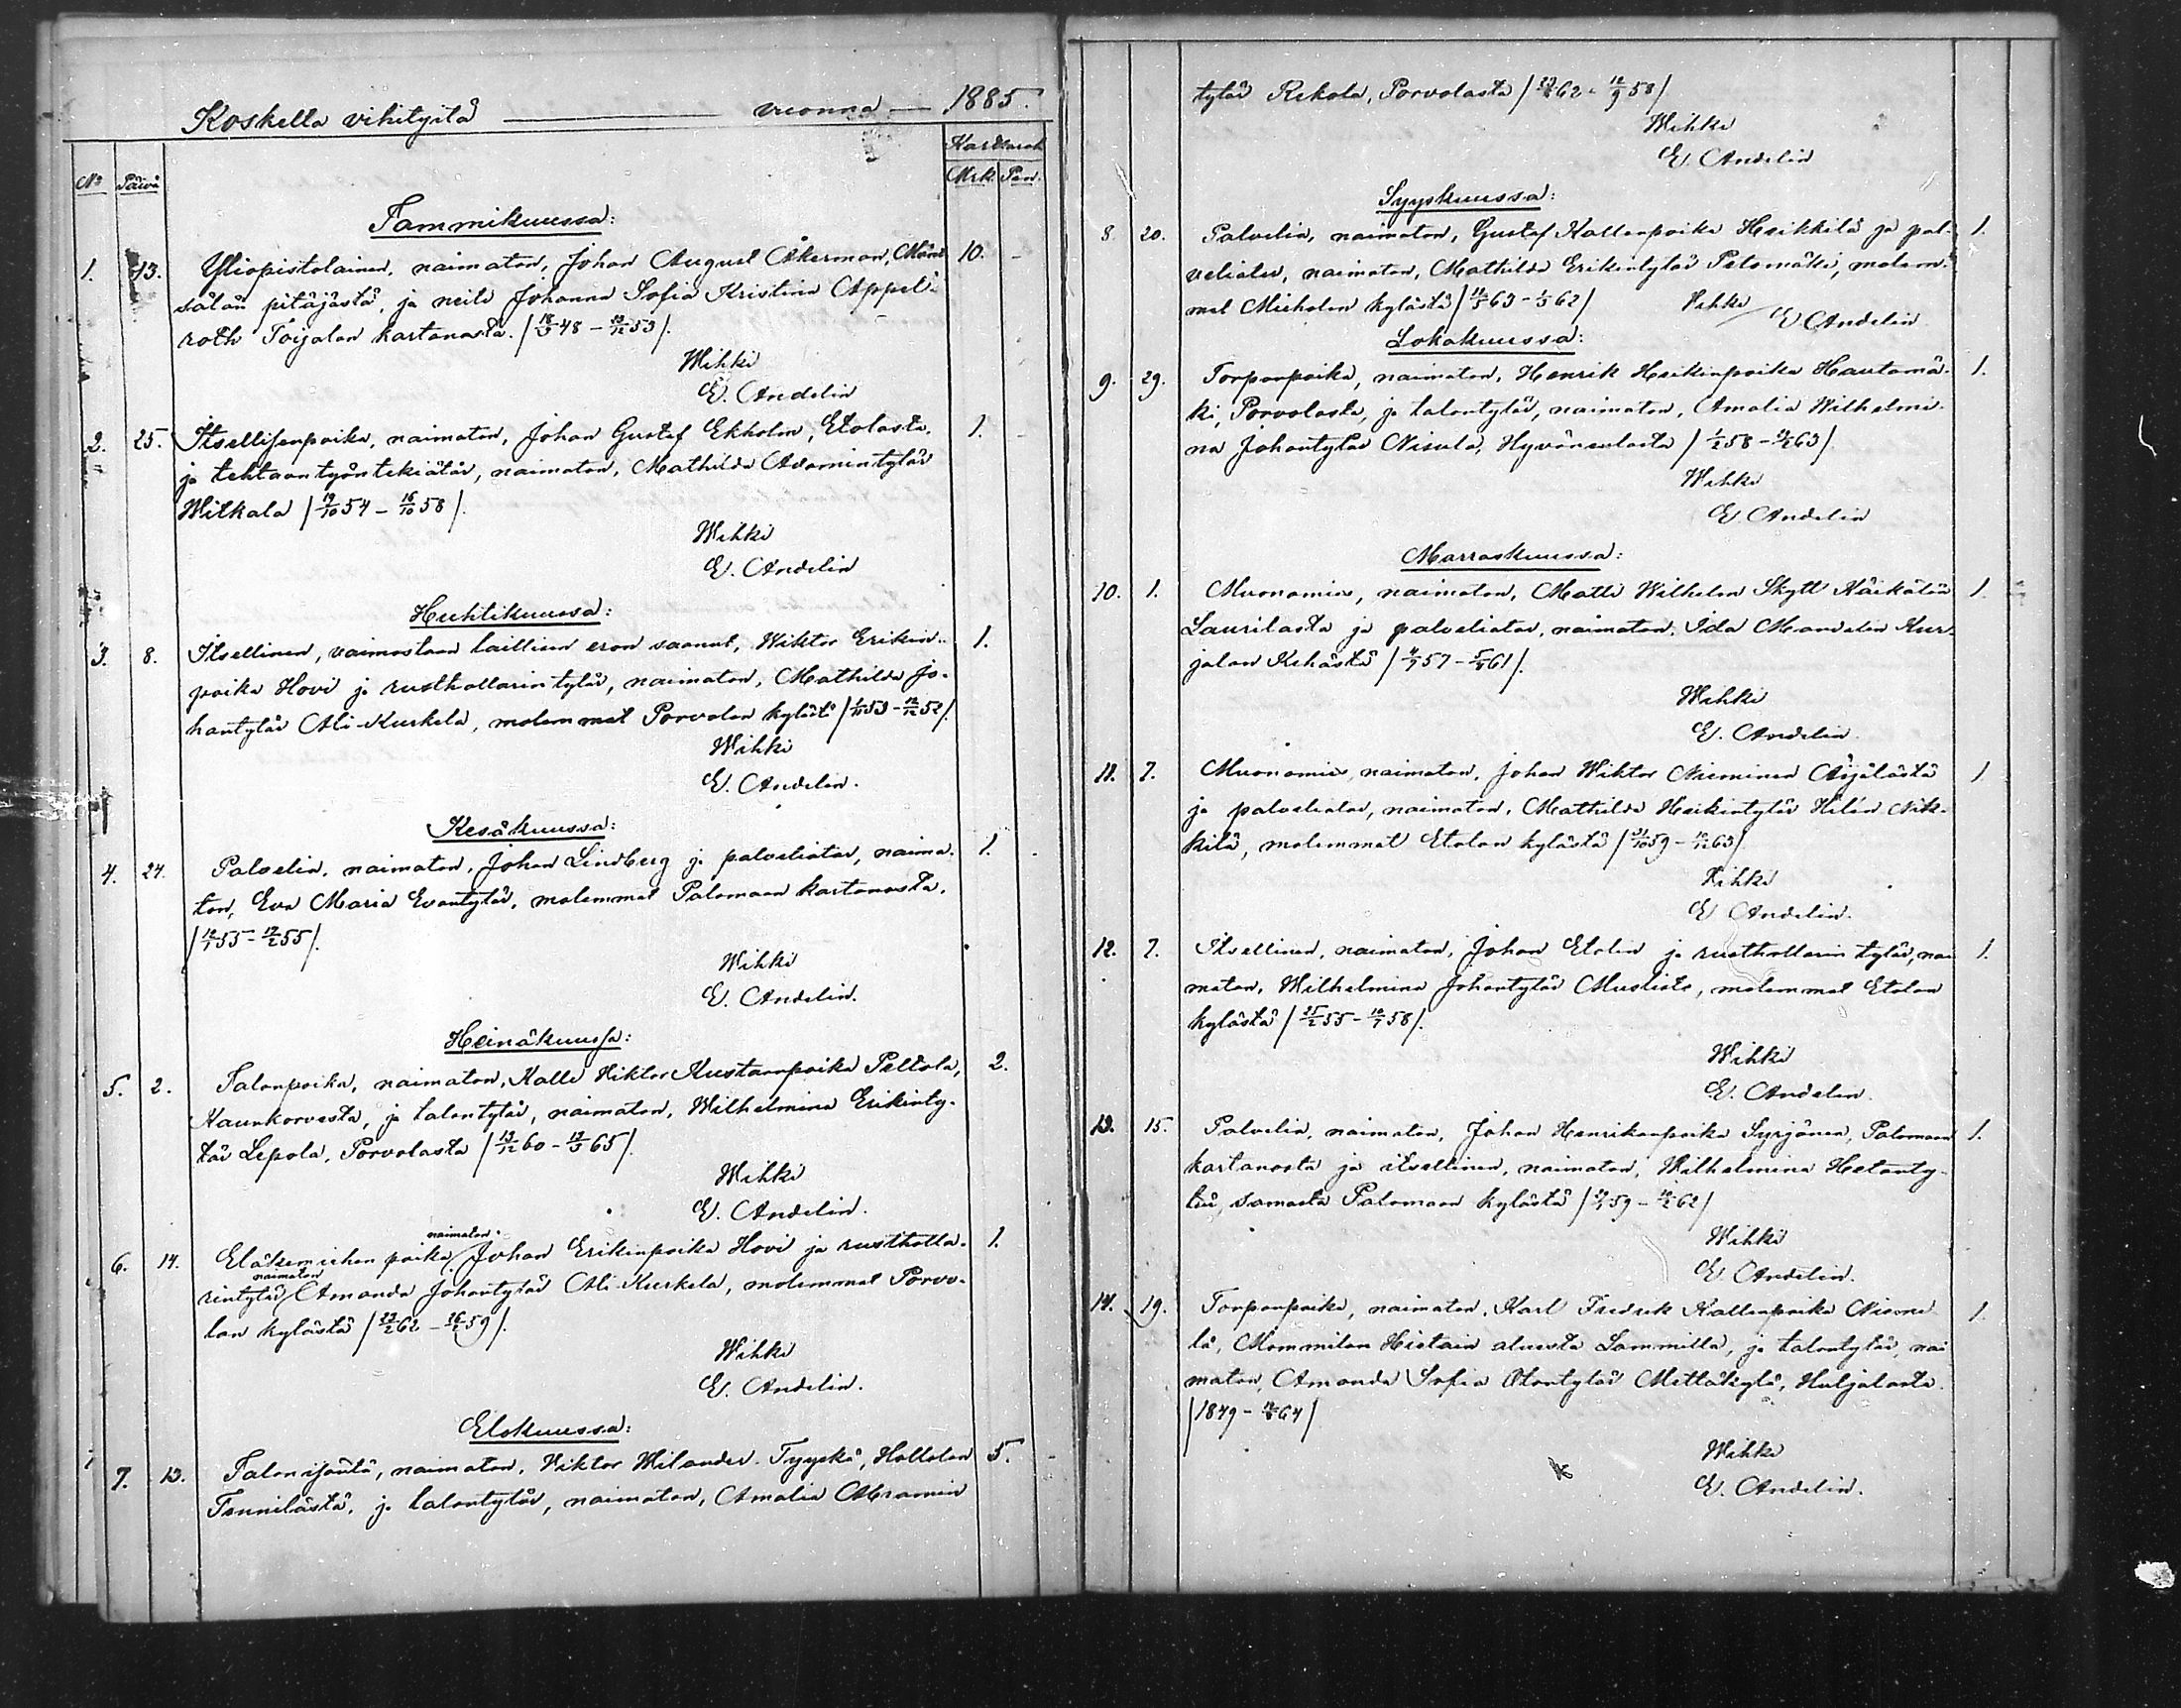 Koskella vihityitä — vuonna — 1885.
No Päivä Mrk. Pen.
Tammikuussa:
1. 13. Yliopistolainen, naimaton, Johan August Åkerman, Mänt- 10. -
sälän pitäjästä, ja neiti Johanna Sofia Kristina Appel-
roth Toijalan kartanosta. /18/3 48 - 53/.
Wihki
E. Andelin
2. 25. Itsellisenpoika, naimaton, Johan Gustaf Ekholm, Etolasta, 1. -
ja tehtaan työntekiätär, naimaton, Mathilda Adamintytär
Witkala /19/10 54 - 16/10 58/.
Wihki
E. Andelin
Huhtikuussa:
3. 8. Itsellinen, vaimostaan laillisen eron saanut, Wiktor Erikin- 1.
poika Hovi ja rusthollarin tytär, naimaton, Mathilda Jo-
hantytär Ali-Kurkela, molemmat Porvolan kylästä / 53 - 52/.
Wihki
E. Andelin.
Kesäkuussa:
4. 24. Palvelia, naimaton, Johan Lindberg ja palveliatar, naima- 1.
ton, Eva Maria Evantytär, molemmat Palomaan kartanosta.
/ 55 - 55/.
Wihki
E. Andelin.
Heinäkuussa:
5. 2. Talonpoika, naimaton, Kalle Wiktor Kustaanpoika Peltola, 2.
Kaunkorvesta, ja talontytär, naimaton, Wilhelmina Erikinty-
tär Lepola, Porvolasta /13/12 60 - 13/3 65/.
Wihki
E. Andelin.
naimaton.
6. 14. Eläkemiehen poika, Johan Erikinpoika Hovi ja rustholla- 1.
naimaton
rintytär Amanda Johantytär Ali-Kurkela, molemmat Porvo-
lan kylästä / 62 - 59/.
Wihki
E. Andelin.
Elokuussa:
7. 13. Talonisäntä, naimaton, Wiktor Wilander Tyyskä, Hollolan 5. -
Tennilästä, ja talontytär, naimaton, Amalia Abramin
tytär Rekola, Porvolasta / 62 - 12/9 58/
Wihki
E. Andelin
Syyskuussa:
8. 20. Palvelia, naimaton, Gustaf Kallenpoika Heikkilä ja pal- 1.
veliatar, naimaton, Mathilda Erikintytär Petomäki, molem-
mat kylästä / 63 - 62/ Wihki
E. Andelin
Lokakuussa:
9. 29. Torpanpoika, naimaton, Henrik Heikinpoika Hautamä- 1.
ki, Porvolasta, ja talontytär, naimaton, Amalia Wilhelmi-
na Johantytär Nisula, Hyväneulasta /1/2 58 - 63/.
Wihki
E. Andelin
Marraskuussa:
10. 1. Muonamies, naimaton, Matti Wilhelm Skytt Käikälän 1.
Laurilasta ja palveliatar, naimaton, Ida Mandelin Kur-
jalan Kehästä / 57 - 61/.
Wihki
E. Andelin.
11. 7. Muonamies, naimaton, Johan Wiktor Nieminen Äijälästä 1
ja palveliatar, naimaton, Mathilda Heikintytär Hilén Nik-
kilä, molemmat Etolan kylästä / 59 - 63/
Wihki
E. Andelin.
12. 7. Itsellinen, naimaton, Johan Etolin ja rusthollarin tytär, nai- 1.
maton, Wilhelmina Johantytär Musliste, molemmat Etolan
kylästä / 55 - 58/.
Wihki
E. Andelin.
13. 15. Palvelia, naimaton, Johan Henrikanpoika Syrjänen, Palomaan 1.
kartanosta ja itsellinen, naimaton, Wilhelmina
samasta Palomaan kylästä / 59 - 62/
Wihki
E. Andelin.
14. 19. Torpanpoika, naimaton, Karl Fredrik Kallenpoika Nieme- 1.
lä, Mommilan Hietain aluesta Lammilla, ja talontytär, nai
maton, Amanda Sofia Otontytär Mettäkylä, Huljalasta.
/1849 - 64/
Wihki
E. Andelin.